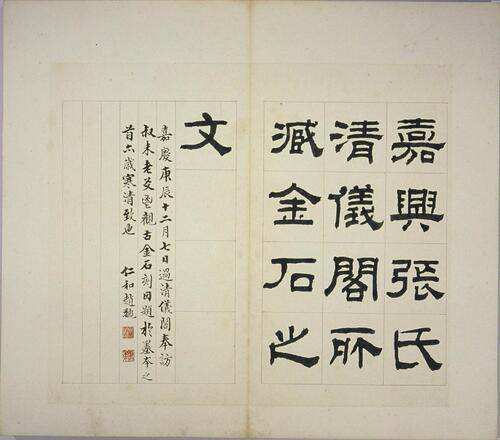 嘉興張氏
清儀閣所
臧金石之
文
嘉慶庚辰十二月七日過清儀閣奉訪
叔未老友觀古金石刻因題於墨本之
首亦歲寒清致也 仁和趙魏